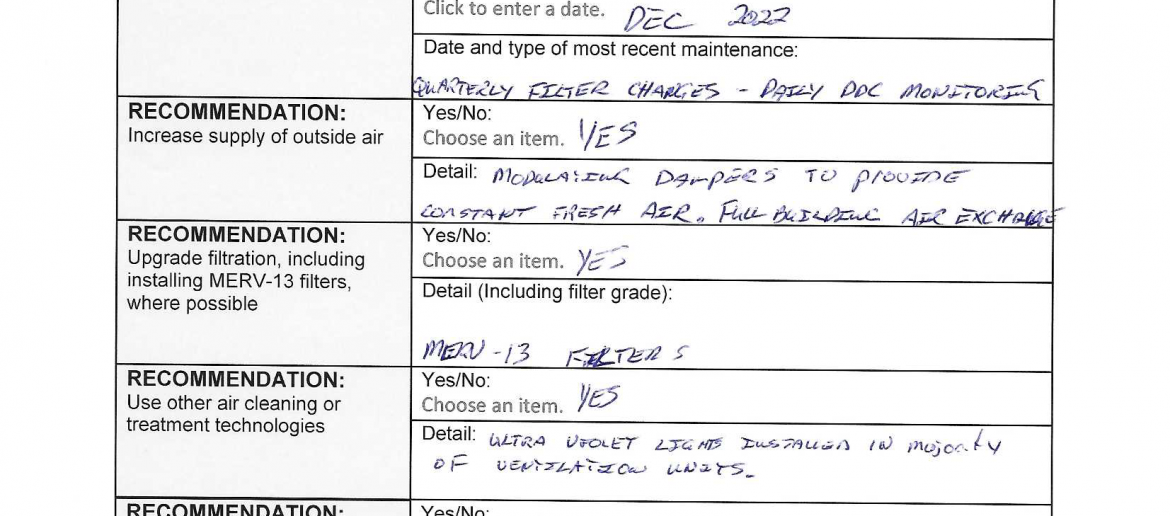 Click to enter a date. DEC 2022
Date and type of most recent maintenance:
QUARTERLY FILTER CHANGES - DAILY DDC MONITORING
RECOMMENDATION:
Increase supply of outside air
Yes/No:
Choose an item. YES
Detail: MODULATING DAMPERS TO PROVIDE
CONSTANT FRESH AIR. FULL BUILDING AIR EXCHANGE
RECOMMENDATION:
Upgrade filtration, including
installing MERV-13 filters,
where possible
Yes/No:
Choose an item. YES
Detail (Including filter grade):
MERV-13 FILTERS
RECOMMENDATION:
Use other air cleaning or
treatment technologies
Yes/No:
Choose an item. YES
Detail: ULTRA VIOLET LIGHTS INSTALLED IN majority
OF VENTILATION UNITS.
RECOMMENDATION:
Yes/No: